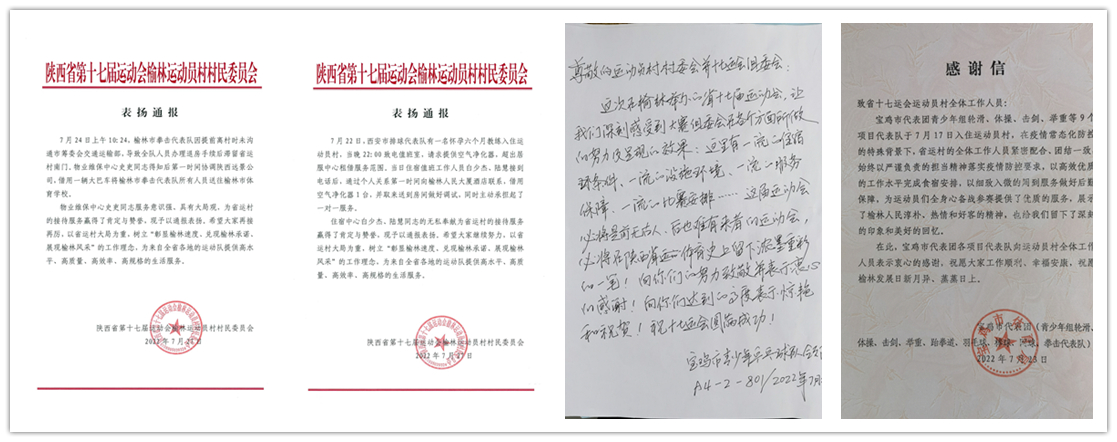 陕西省第十七届运动会榆林运动员村村民委员会
表扬通报
7月24日上午10:24，榆林市拳击代表队因提前离村时未沟
通市筹委会交通运输部，导致全队人员办理退房手续后滞留省运
村南门，物业维保中心史吏同志得知后第一时间协调陕西远景公
司，借用一辆大巴车将榆林市拳击代表队所有人员送往榆林市体
育学校。
物业维保中心史吏同志服务意识强、具有大局观，为省运村
的接待服务赢得了肯定与赞誉，现予以通报表扬。希望大家再接
再厉，以省运村大局为重，树立“彰显榆林速度、兑现榆林承诺、
展现榆林风采”的工作理念，为来自全省各地的运动队提供高水
平、高质量、高效率、高规格的生活服务。
陕西省第十七届运动会榆林运动员村村民委员会
2022年7月
陕西省第十七届运动会榆林运动员村村民委员会
表扬通报
7月22日，西安市排球代表队有一名怀孕六个月教练入住运
动员村，当晚22:00致电值班室，请求提供空气净化器，超出居
服中心租借服务范围，当日住宿值班工作人员白少杰、陆慧接到
电话后，通过个人关系第一时间向榆林人民大厦酒店联系，借用
空气净化器1台，并取来送到房间做好调试，同时主动承担起了
一对一服务。
住宿中心白少杰、陆慧同志的无私奉献为省运村的接待服务
赢得了肯定与赞誉，现予以通报表扬。希望大家继续努力，以省
运村大局为重，树立“彰显榆林速度、兑现榆林承诺、展现榆林
风采”的工作理念，为来自全省各地的运动队提供高水平、高质
量、高效率、高规格的生活服务。
陕西省第十七届运动会榆林运动员村村民委员会
2022年7月
尊敬的运动员村村委会并十七运会组委会：
这次在榆林举办的省十七届运动会，让
我们深刻感受到大赛组委会在各个方面所做
的努力及呈现的效果：这里有一流的住宿
环条件、一流的设施环境、一流的服务
保障、一流的比赛安排……这届运动会
必将是前无古人、后也难有来者的运动会，
必将在陕西省运动体育史上留下浓墨重彩
的一笔！向你们的努力致敬并表示衷心
的感谢！向你们达到的高度表示惊艳
和祝贺！祝十七运会圆满成功！
宝鸡市青少年乒乓球队全
A4-2-801/2022年7月
感谢信
致省十七运会运动员村全体工作人员：
宝鸡市代表团青少年组轮滑、体操、击剑、举重等9个
项目代表队于7月17日入住运动员村，在疫情常态化防控
的特殊背景下，省运村的全体工作人员紧密配合、团结一致，
始终以严谨负责的担当精神落实疫情防控要求，以高效优质
的工作水平完成食宿安排，以细致入微的问到服务做好后勤
保障，为运动员们全身心备战参赛提供了优质的服务，展示
了榆林人民淳朴、热情和好客的精神，也给我们留下了深刻
的印象和美好的回忆。
在此，宝鸡市代表团各项目代表队向运动员村全体工作
人员表示衷心的感谢，祝愿大家工作顺利、幸福安康，祝愿
榆林发展日新月异、蒸蒸日上。
宝鸡市代表团（青少年组轮滑、
体操、击剑、举重、跆拳道、羽毛球、拳击代表队）
2022年7月23日